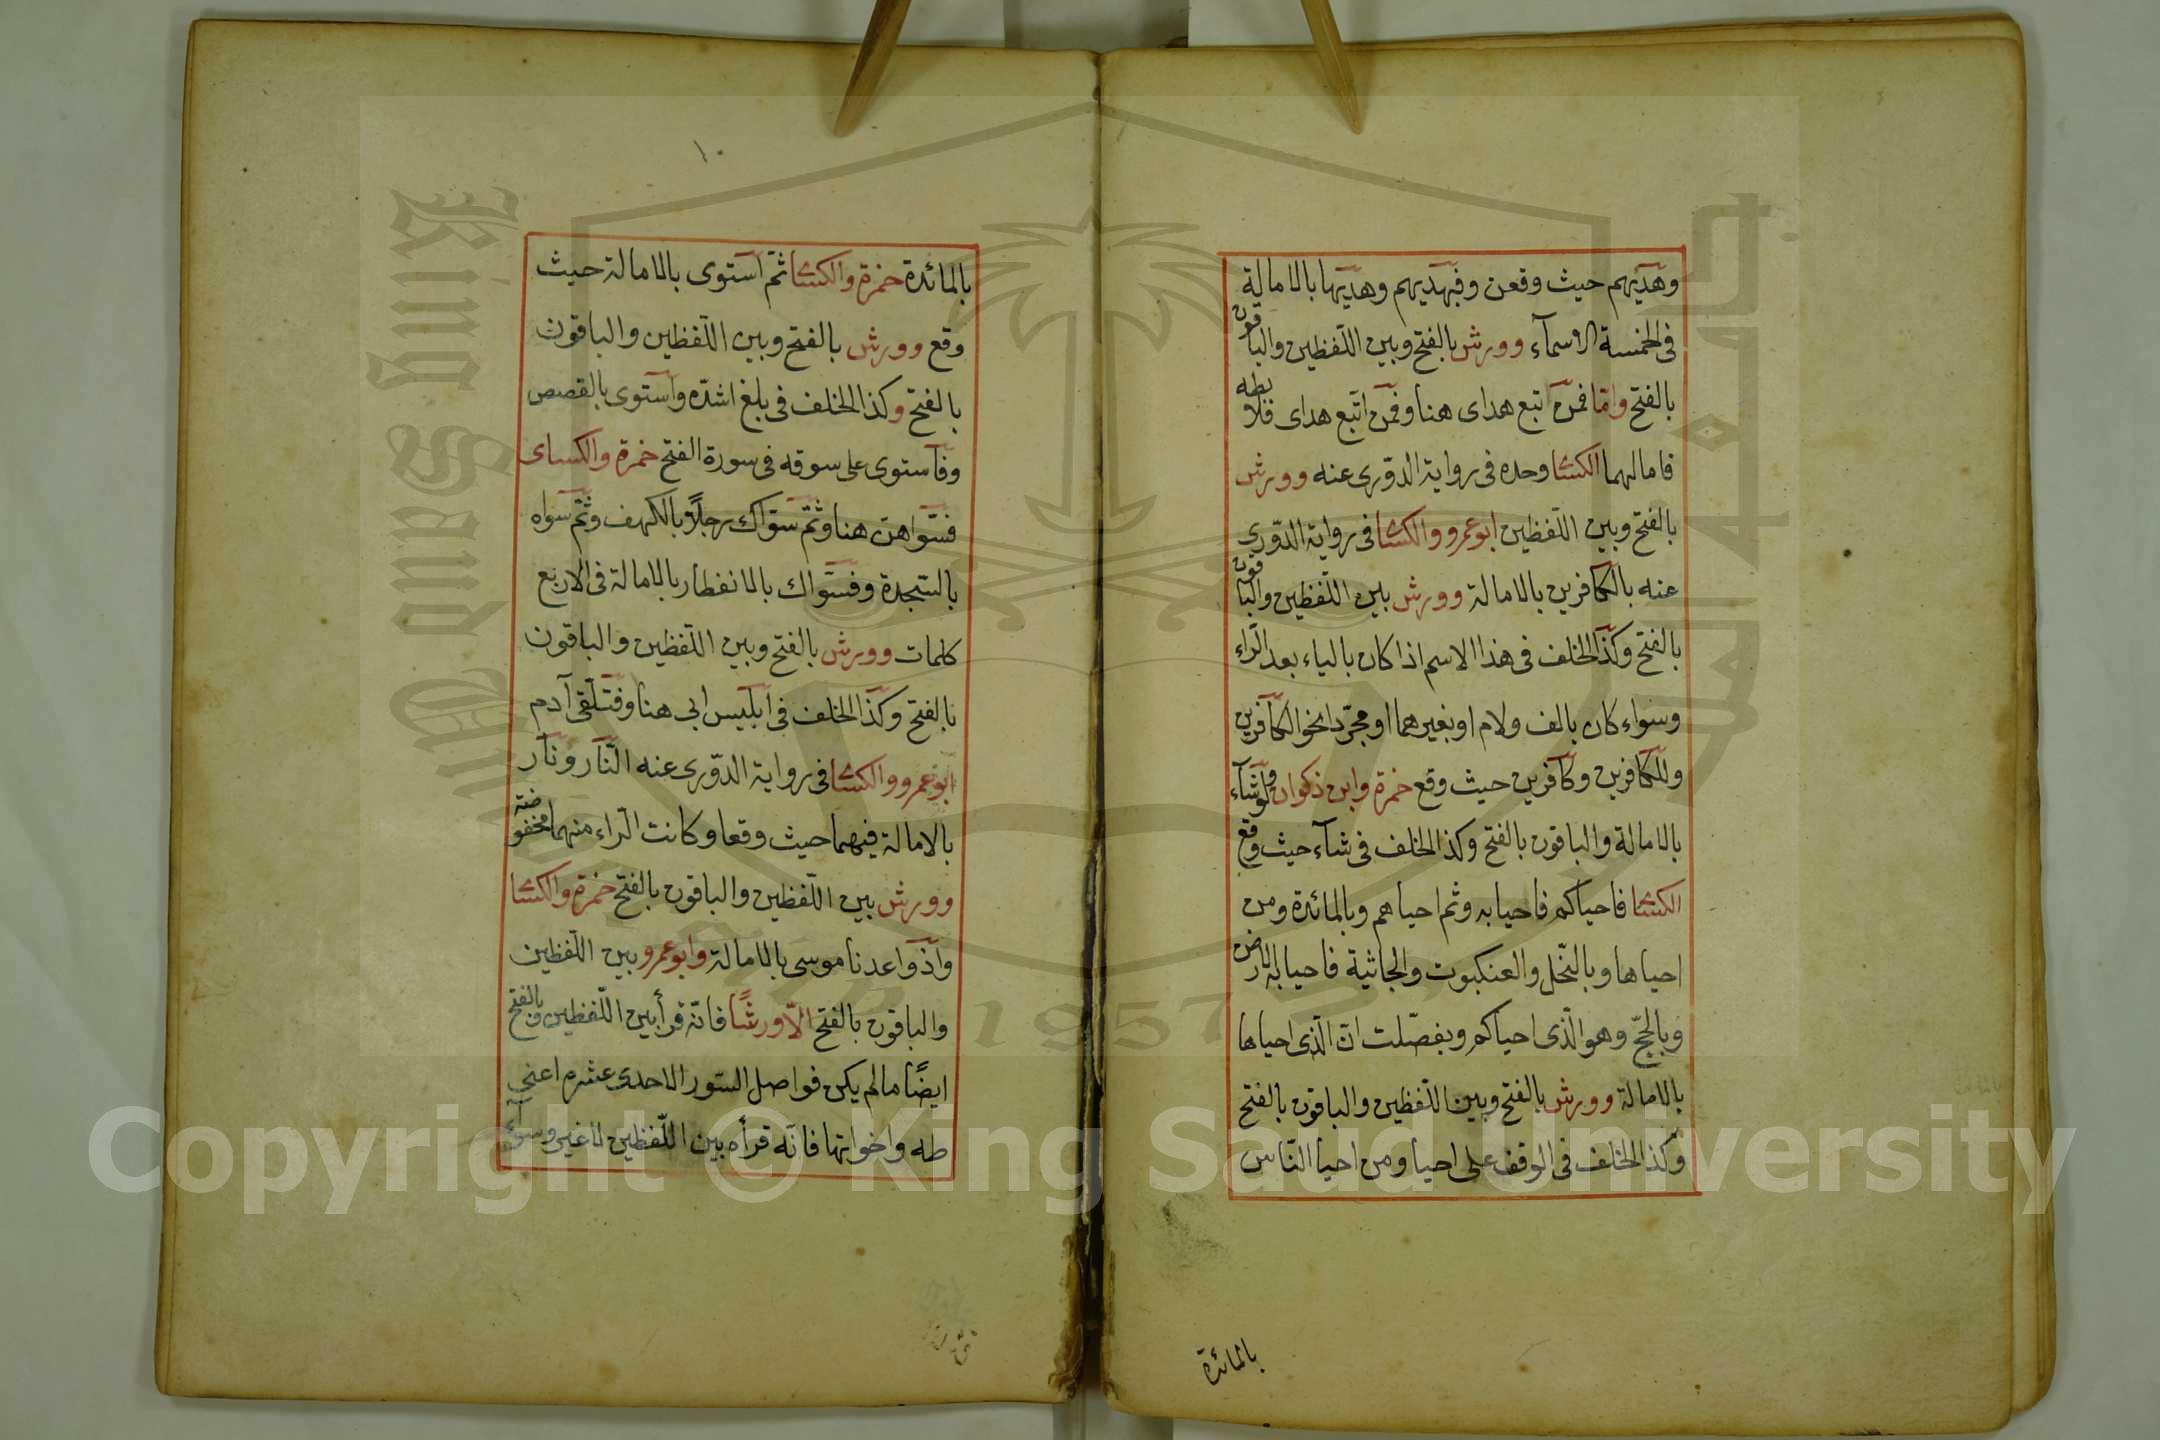 وهديهم حيث وقعن وفبهديهم وهديها بالامالة
فى الخمسة الاسمآء وورش بالفتح وبين اللّفظين والباقون
بالفتح وامّا فمن اتبع هداى هنا وفمن اتّبع هداى فلا بطه
فامالهما الكسا وحده فى رواية الدّورى عنه وورش
بالفتح وبين اللّفظين ابو عمرو والكسا فى رواية الدّورى
عنه بالكافرين بالامالة وورش بين اللّفظين والباقون
بالفتح وكذا الخلف فى هذا الاسم اذا كان بالياء بعد الرّاء
وسواء كان بالف ولام او بغيرهما او مجرّدا نحو الكافرين
وللكافرين وكافرين حيث وقع حمزة وابن ذكوان ولوشآء
بالامالة والباقون بالفتح وكذا الخلف فى شآء حيث وقع
الكسا فاحياكم فاحيا به وثم احياهم وبالمائدة ومن
احياها وبالنّحل والعنكبوت والجاثية فاحيا به الارض
وبالحجّ وهو الّذى احياكم وبفصّلت انّ الّذى احياها
بالامالة وورش بالفتح وبين اللّفظين والباقون بالفتح
وكذا الخلف فى الوقف على احيا ومن احيا النّاس
بالمائدة
١٠
بالمائدة حمزة والكسا ثمّ استوى بالامالة حيث
وقع وورش بالفتح وبين اللّفظين والباقون
بالفتح وكذا الخلف فى بلغ اشدّه واستوى بالقصص
وفاستوى على سوقه فى سورة الفتح حمزة والكساى
فسّواهن هنا وثمّ سوّاك رجلاً بالكهف وثمّ سواه
بالسّجدة وفسّواك بالانفطار بالامالة فى الاربع
كلمات وورش بالفتح وبين اللّفظين والباقون
بالفتح وكذا الخلف فى ابليس ابى هنا وفتلقّى آدم
ابو عمرو والكسا فى رواية الدّورى عنه النّار ونار
بالامالة فيهما حيث وقعا وكانت الرّاء منهما مخفوضة
وورش بين اللّفظين والباقون بالفتح حمزة والكسا
واذ واعدنا موسى بالامالة وابو عمرو وبين اللّفظين
والباقون بالفتح الّا ورشًا فانّه قرأ بين اللّفظين وبالفتح
ايضًا مالم يكن فواصل السّور الاحدى عشرم اعنى
طه واخواتها فانّه قرأه بين اللّفظين لا غير وسوآء
King Saud University
1957
Copyright © King Saud University